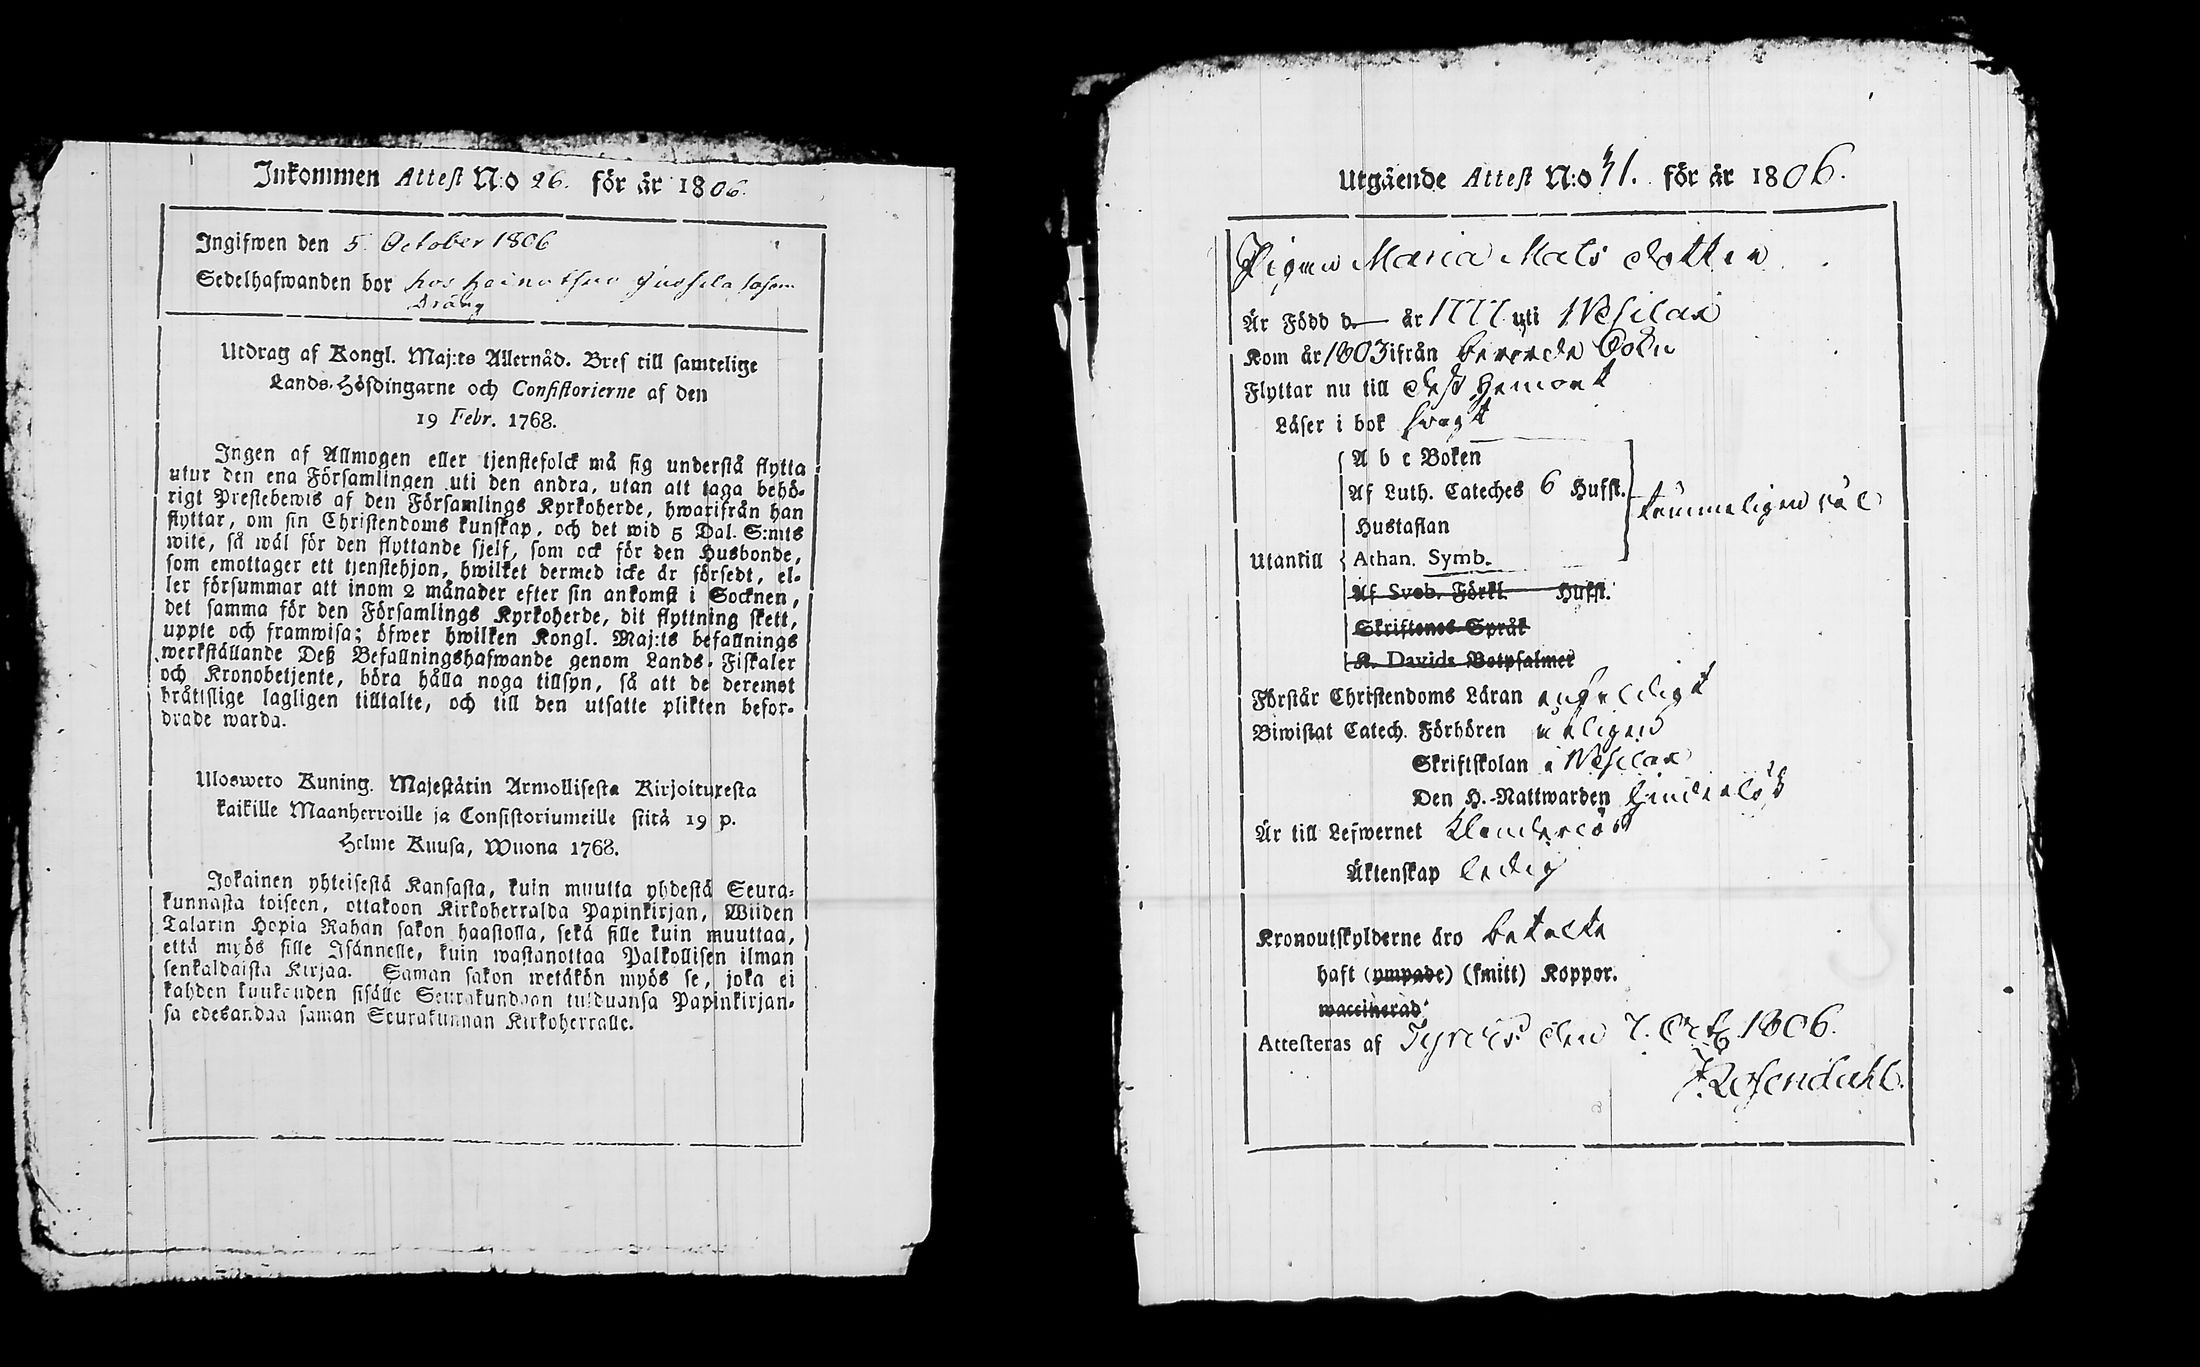 Inkommen Attest N:o 26. för år 1806.
Ingifwen den 5. October 1806
Sedelhafwanden bor hos
Dräng
Utdrag af Kongl. Maj:ts Allernåd. Bref till samtelige
Lands-Höfdingarne och Consistorierne af den
19 Febr. 1768.
Ingen af Allmogen eller tjenstefolck må sig understå flytta
utur den ena Församlingen uti den andra, utan att taga behö-
rigt Prestebewis af den Församlings Kyrkoherde, hwarifrån han
flyttar, om sin Christendoms kunskap, och det wid 5 Dal. S:mts
wite, så wäl för den flyttande sjelf, som ock för den Husbonde,
som emottager ett tjenstehjon, hwilket dermed icke är försedt, el-
ler försummar att inom 2 månader efter sin ankomst i Socknen,
det samma för den Församlings Kyrkoherde, dit flyttning skett,
uppte och framwisa; öfwer hwilken Kongl. Maj:ts befallnings
werkställande Deß Befallningshafwande genom Lands-Fiskaler
och Kronobetjente, böra hålla noga tillsyn, så att de deremot
bråttslige lagligen tilltalte, och till den utsatte plikten befor-
drade warda.
Ulosweto Kuning. Majestätin Armollisesta Kirjoituxesta
kaikille Maanherroille ja Consistoriumeille siitä 19 p.
Helme Kuusa, Wuona 1768.
Jokainen yhteisestä Kansasta, kuin muutta yhdestä Seura-
kunnasta toiseen, ottakoon Kirkoherralda Papinkirjan, Wiiden
Talarin Hopia Rahan sakon haastolla, sekä sille kuin muuttaa,
että myös sille Isännelle, kuin wastanottaa Palkollisen ilman
senkaldaista Kirjaa. Saman sakon wetäkön myös se, joka ei
kahden kuukauden sisälle Seurakundaan tulduansa Papinkirjan-
sa edesandaa saman Seurakunnan Kirkoherralle.
Utgående Attest N:o 31. för år 1806.
Pigan Maria Mats dotter
Är Född d.— år 1777 uti Wesilax
Kom år 1803 ifrån berörde Sokn
Flyttar nu till dess hemort
Läser i bok svagt
A b c Boken
Af Luth. Cateches 6 Hufst.
tämmeligen väl
Hustaflan
Utantill Athan. Symb.
Af Sveb. Förkl. Hufst.
Skriftenes Språk
K. Davids Botpsalmer
Förstår Christendoms Läran enfaldigt
Biwistat Catech. Förhören årligen
Skriftskolan i Wesilax
Den H. Nattwarden hinderlöst
Är till Lefwernet klanderlös
Äktenskap ledig
Kronoutskylderne äro betalte
haft (ympade) (smitt) Koppor.
waccinerad
Attesteras af Tyrvis den 7. Octb. 1806.
Rosendahl.